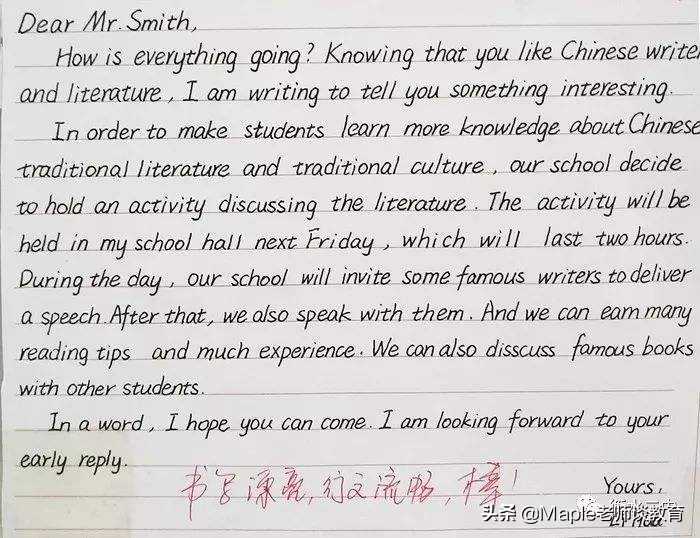 Dear Mr. Smith,
How is everything going? Knowing that you like Chinese write
and literature, I am writing to tell you something interesting.
In order to make students learn more knowledge about Chinese
traditional literature and traditional culture, our school decide
to hold an activity discussing the literature. The activity will be
held in my school hall next Friday, which will last two hours.
During the day, our school will invite some famous writers to deliver
a speech. After that, we also speak with them. And we can earn many
reading tips and much experience. We can also disscuss famous books
with other students.
In a word, I hope you can come. I am looking forward to your
early reply.
书写漂亮,行文流畅,棒!
Yours,
Li Hua
头条 @Maple老师谈教育